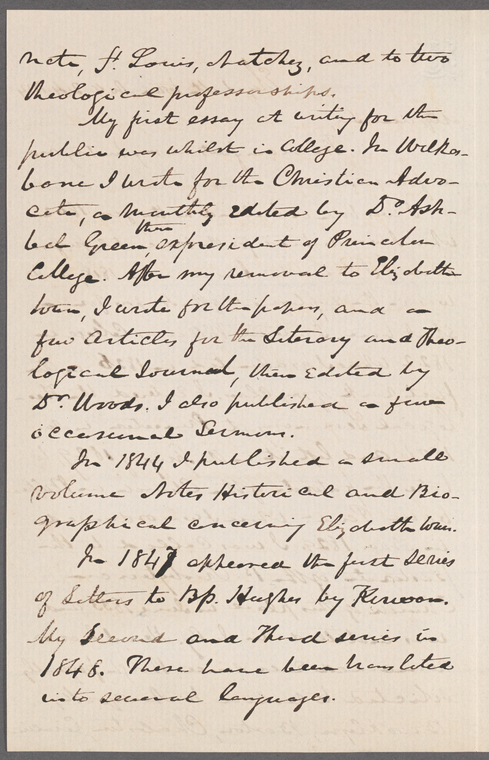 nati, St. Louis, Natchez, and to two
theological professorships.
My first essay at writing for the
public was whilst in College. In Wilks-
barre I wrote for the Christian Advo-
cate, a Monthly edited by Dr. Ash-
bel Green, then expresident of Princeton
College. After my removal to Elizabeth
town, I wrote for the papers, and a
few articles for the Literary and Theo-
logical Journal, then edited by
Dr. Woods. I also published a few
occasional Sermons.
In 1844 I published a small
volume Notes Historical and Bio-
graphical concerning Elizabeth town.
In 1847 appeared the first series
of Letters to Bp. Hughes by Kirwan.
My Second and Third series in
1848. These have been translated
into several languages.